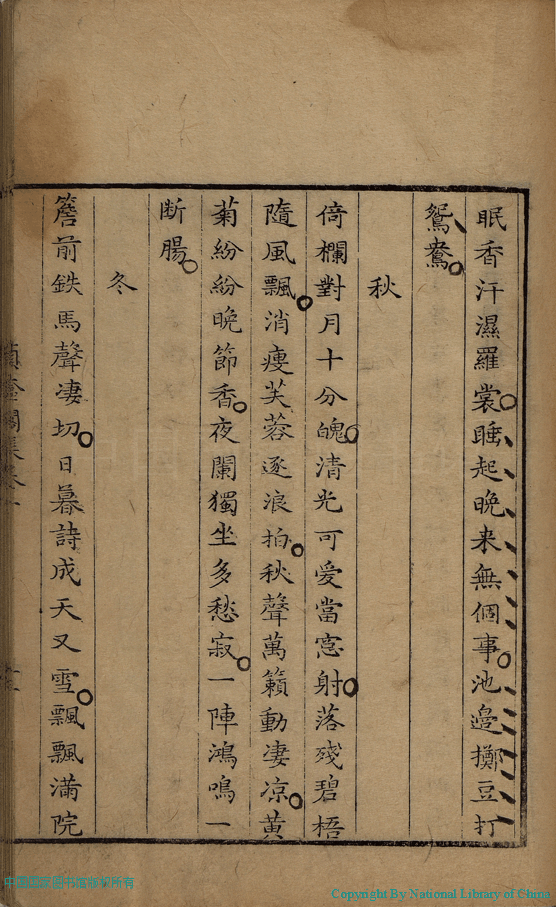 眠香汗濕羅裳睡起晚来無個事池邉擲豆打
鴛鴦
秋
倚欄對月十分魄清光可愛當窓射落殘碧梧
隨風飄消瘦芙蓉逐浪拍秋聲萬籟動凄凉黄
菊紛紛晚節香夜闌獨坐多愁寂一陣鴻鳴一
断腸
冬
簷前鉄馬聲凄切日暮詩成天又雪飄飄满院
Copyright By National Library of China